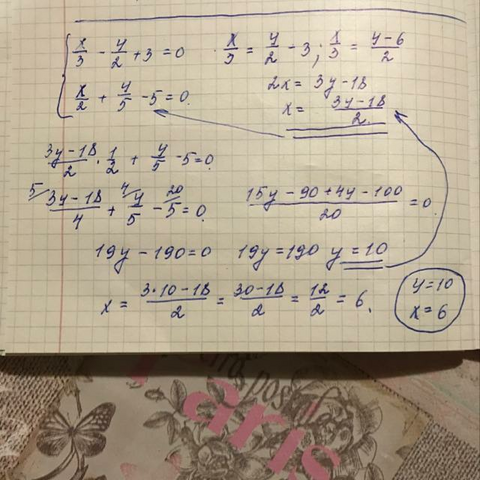 x/3 - y/2 + 3 = 0   x/3 = y/2 - 3; x/3 = (y-6)/2
x/2 + y/5 - 5 = 0.   2x = 3y - 18
x = (3y-18)/2.
(3y-18)/2 · 1/2 + y/5 - 5 = 0.
5/ (3y-18)/4 + 4/ y/5 - 20/ 5 = 0.   (15y - 90 + 4y - 100)/20 = 0.
19y - 190 = 0   19y = 190   y = 10
x = (3·10-18)/2 = (30-18)/2 = 12/2 = 6.
y = 10
x = 6
Paris